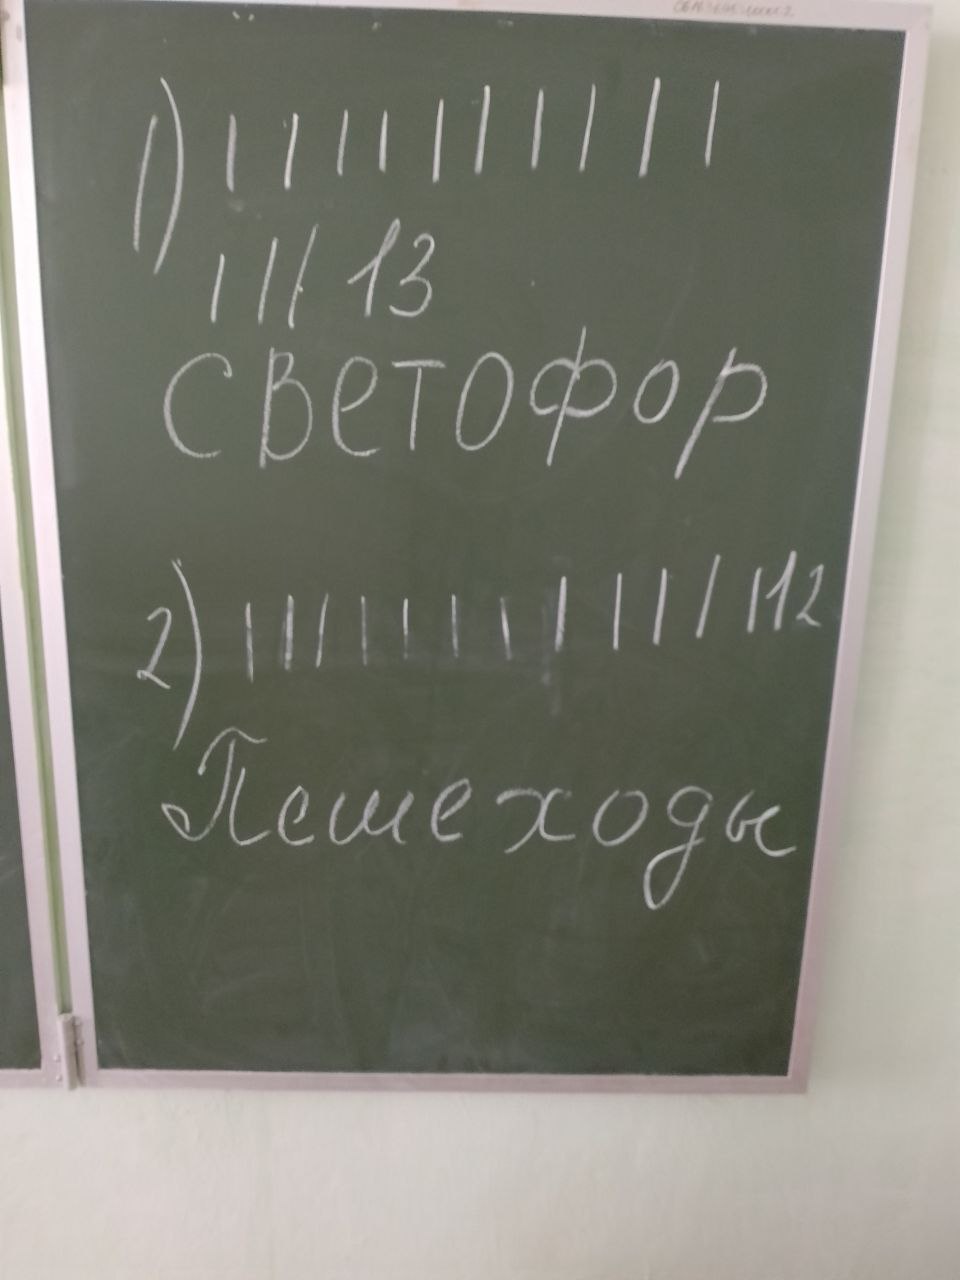 1) | | | | | | | | | |
| | | 13
светофор
2) | | | | | | | | | | | | 12
Пешеходы